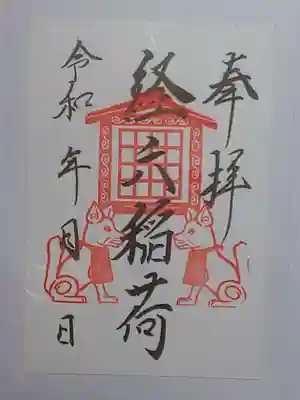 奉拝
経六稲荷
令和 年 月 日